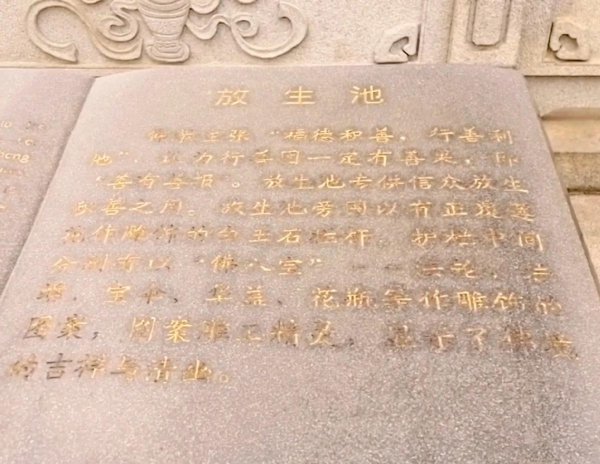 放生池
佛教主张“福德和善，行善利
他”，认为行善因一定有善果，即
“善有善报”。放生池专供信众放生
积善之用。放生池旁围以有正
作雕饰的白玉石栏杆，护栏中间
分别有以“佛八宝”——法轮、法
螺、宝伞、华盖、花瓶等作雕饰的
图案，图案雕工精美，显示了佛教
的吉祥与清幽。